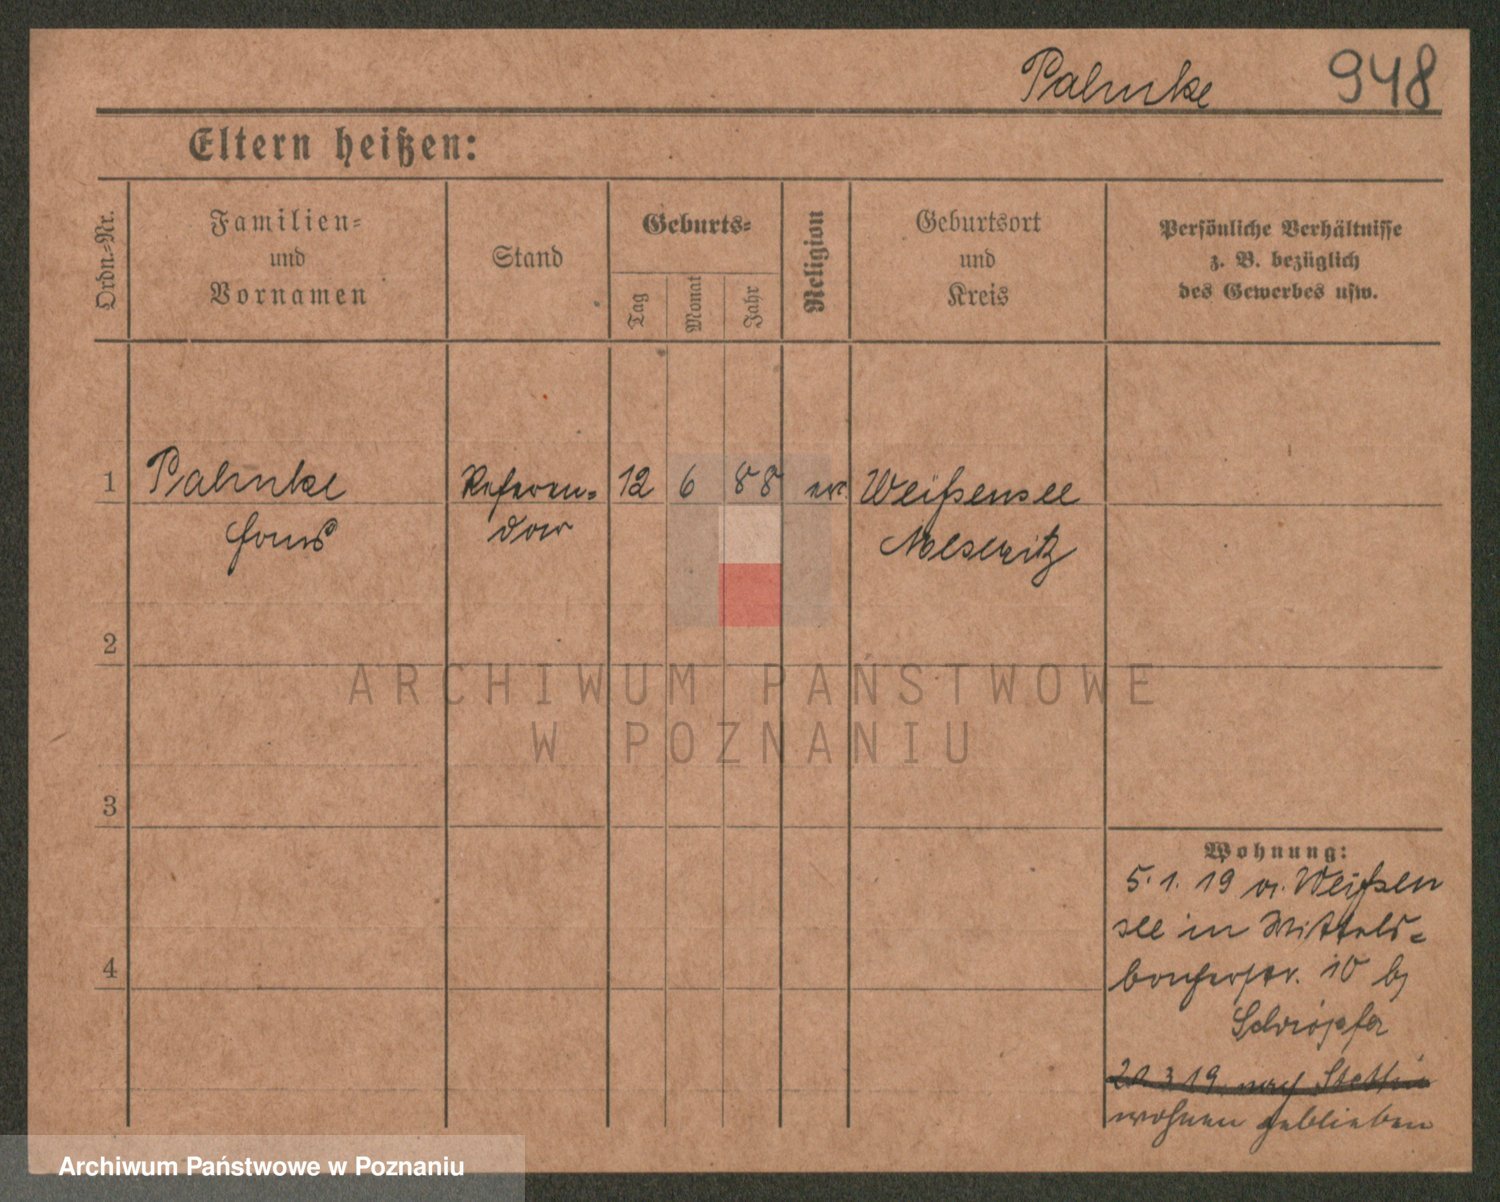 Pahnke 948
Eltern heißen:
Ordn.-Nr.
Familien-
und
Vornamen
Stand
Geburts-
Tag
Monat
Jahr
Religion
Geburtsort
und
Kreis
Persönliche Verhältnisse
z. B. bezüglich
des Gewerbes usw.
1 Pahnke Referen- 12 6 88 ev. Weißensee
Hans dar Meseritz
2
3
4
Wohnung:
5. 1. 19 v. Weißen
see in Mittels-
bacherstr. 10 bj
Schröpfer
21. 3 19. nach Stettin
wohnen geblieben
ARCHIWUM PAŃSTWOWE
W POZNANIU
Archiwum Państwowe w Poznaniu